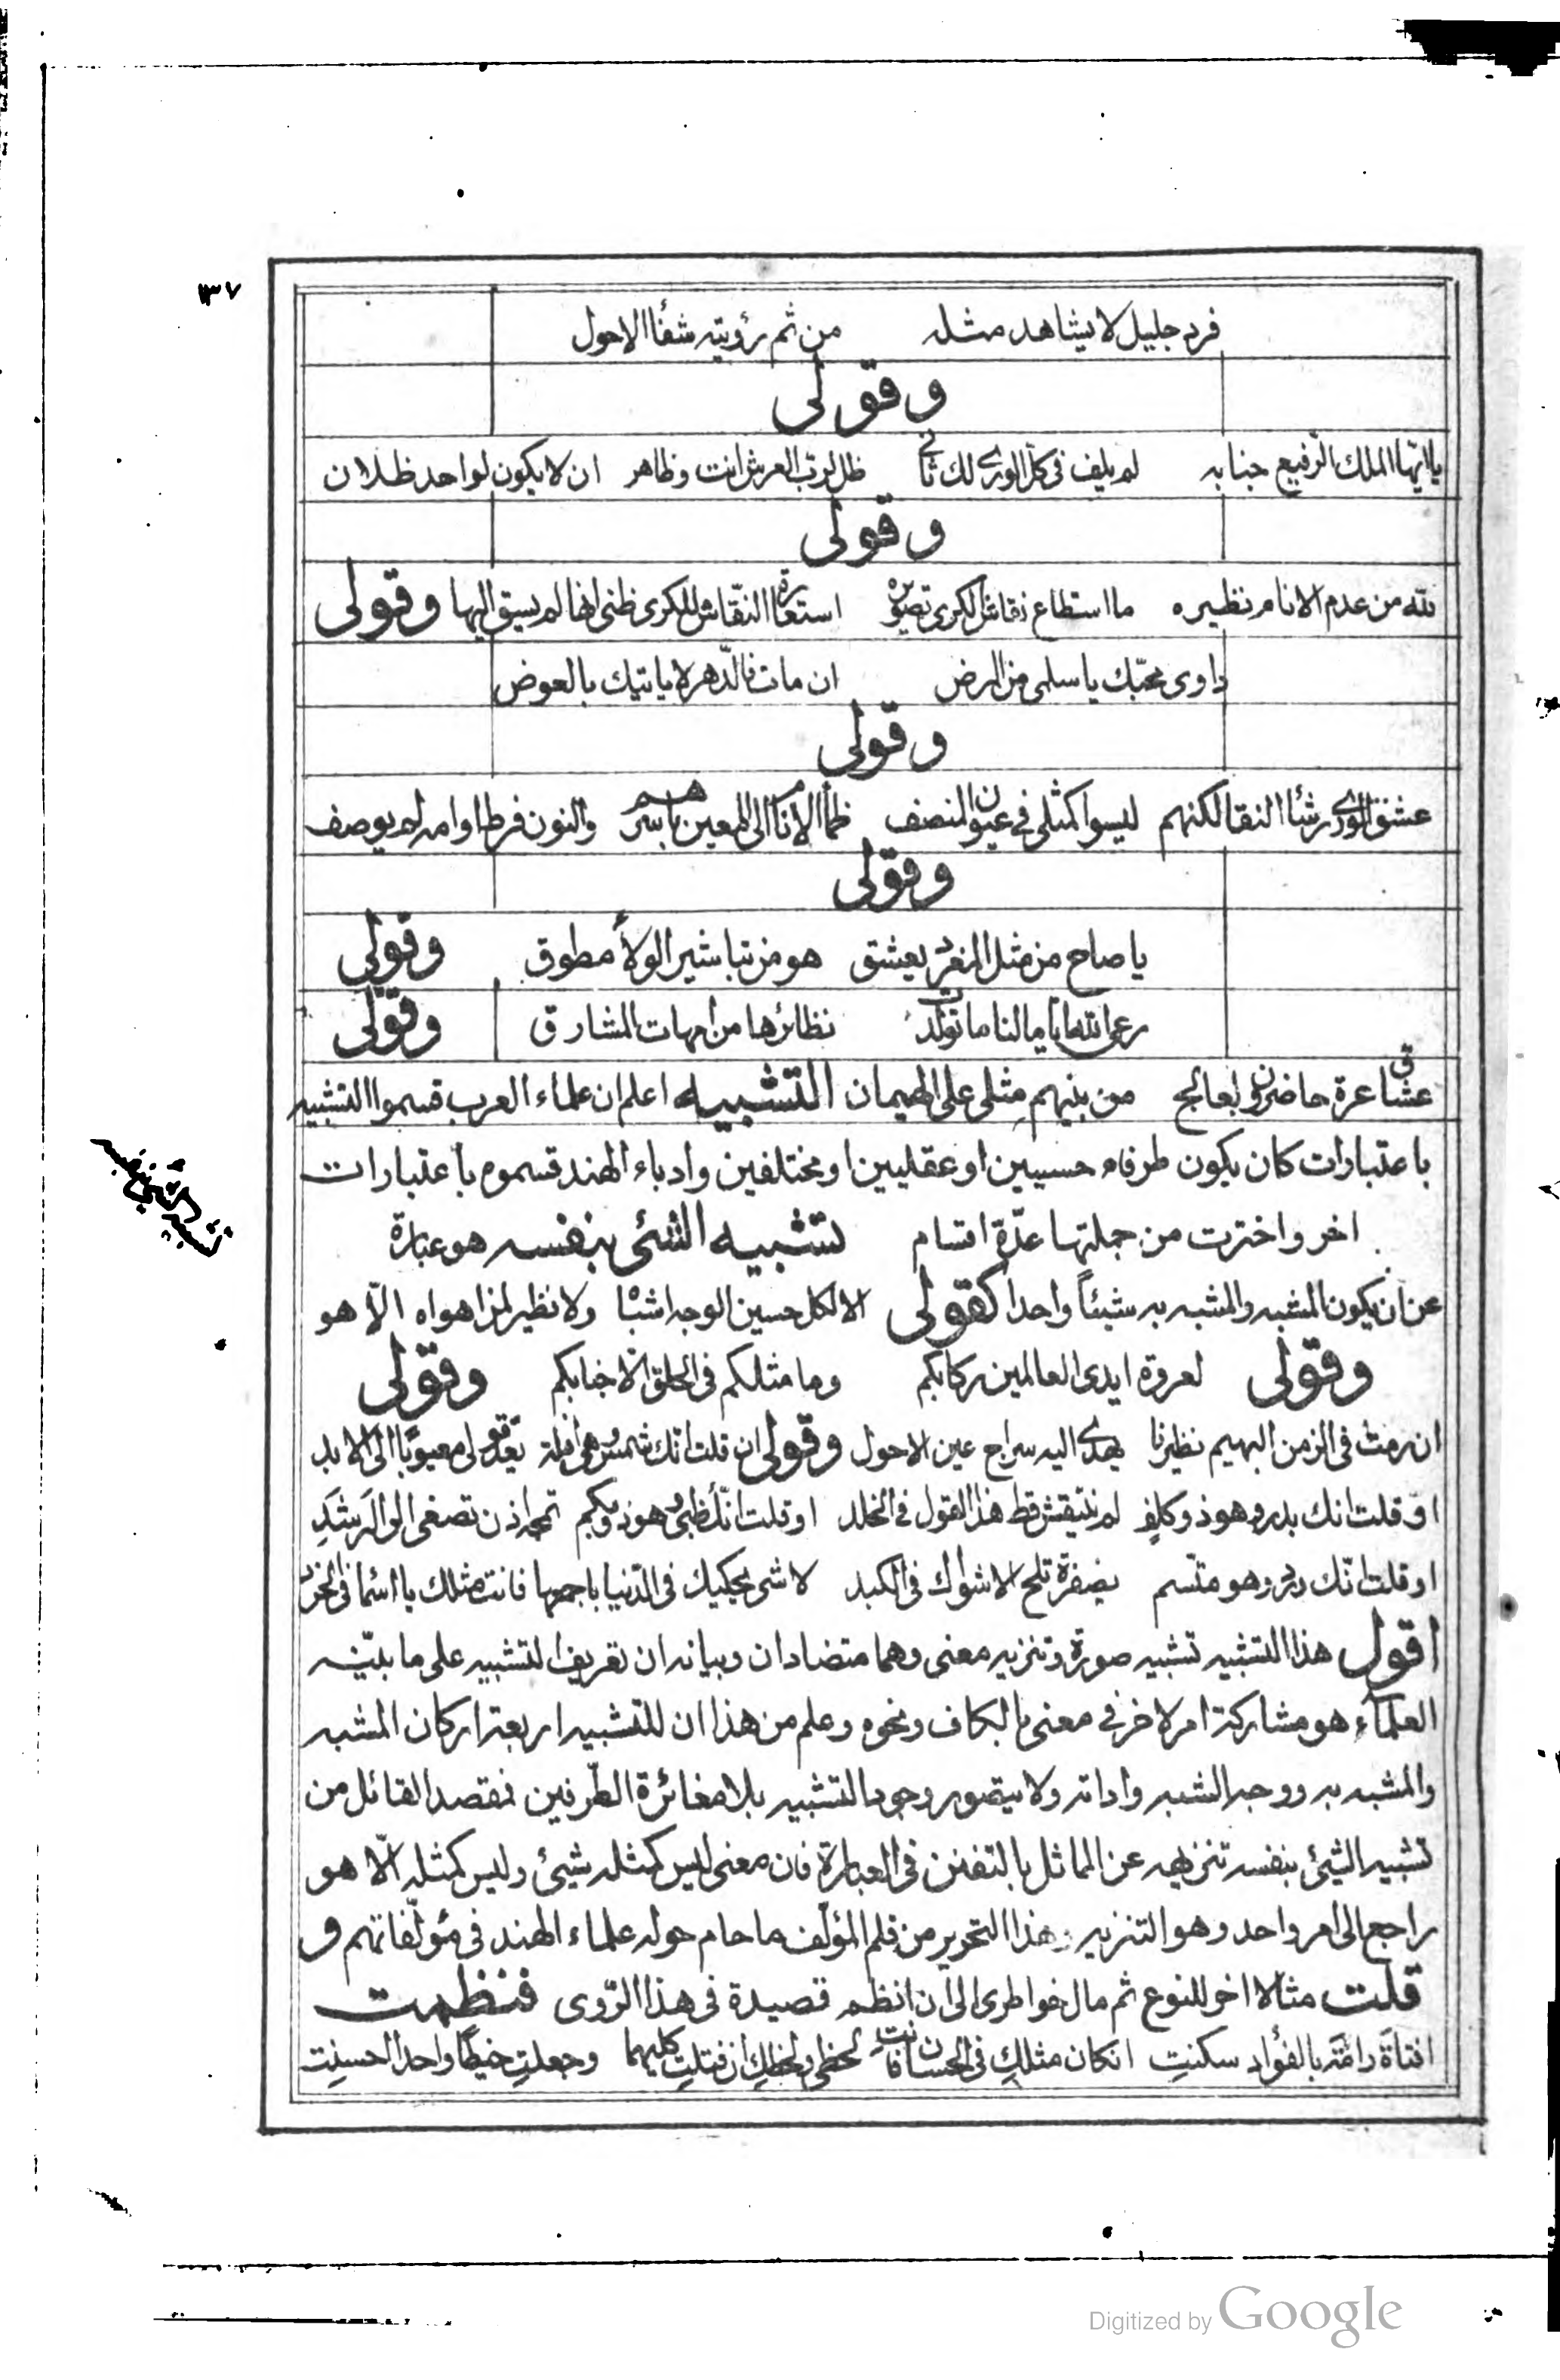 ١٣٧
فرد جليل لا يشاهد مثله من ثم رؤيته شفأ الاحول
وقولى
يا ايّها الملك الرّفيع جنابه لم يلف فى كلّ الورى لك ثانى ظل لربّ العرش انت وظاهر ان لا يكون لواحد ظلان
وقولى
لله من عدم الانام نظيره ما استطاع نقاش الكرى تصويره استعارة النقّاش للكرى ظنى انها لم يسبق اليها وقولى
داوى محبّك يا سلمى من المرض ان مات فالدّهر لا ياتيك بالعوض
وقولى
عشق الورى رشأ النقا لكنهم ليسوا كمثلى فى عيون المنصف ظمأ الانام الى المعين باسرهم والنون فرط اوامه لم يوصف
وقولى
يا صاح من مثل المغرد يعشق هو من تباشير الولأ مطوق وقولى
رعى الله اياما لنا ما تولدت نظائرها من امهات المشارق وقولى
عشاق عزة حاضرون بعالج من بينهم مثلى على الهيمان التشبيه اعلم ان علماء العرب قسموا التشبيه
باعتبارات كان يكون طرفاه حسيين او عقليين او مختلفين وادباء الهند قسموه باعتبارات
اخر واخترت من جملتها عدّة اقسام تشبيه الشئ بنفسه هو عبارة
تشبيه الشئ بنفسه
عن ان يكون المشبه والمشبه به شيئاً واحدا كقولى الا لكل حسين الوجه اشباه ولا نظير لمن اهواه الّا هو
وقولى لعروة ايدى العالمين ركابكم وما مثلكم فى الخلق الّا جنابكم وقولى
ان رمت فى الزمن البهيم نظيرنا يهدى اليه سراج عين الاحول وقولى ان قلت انك شمس وهى افلة تعد قولى معيوبًا الى الابد
او قلت انك بدر وهو ذو كلف لم ينتقش قط هذا القول فى الخلد او قلت انّك ظبى وهو ذو بكم تمجه اذن تصغى الى الرشد
او قلت انّك ورد وهو متّسم بصفرة تلج الاشواك فى الكبد لا شى يحكيك فى الدّنيا باجمعها فانت مثلك يا اسما فى الخرد
اقول هذا التشبيه تشبيه صورة وتنزيه معنى وهما متضادان وبيانه ان تعريف التشبيه على ما بيّنه
العلمآء هو مشاركة امر لاخر فى معنى بالكاف ونحوه وعلم من هذا ان للتشبيه اربعة اركان المشبه
والمشبه به ووجه الشبه واداته ولا يتصور وجود التشبيه بلا مغائرة الطّرفين فقصد القائل من
تشبيه الشئ بنفسه تنزيهه عن المماثل بالتفنن فى العبارة فان معنى ليس كمثله شيئ وليس كمثله الّا هو
راجع الى امر واحد وهو التنزيه وهذا التحرير من قلم المؤلّف ما حام حوله علماء الهند فى مؤلّفاتهم و
قلت مثالا اخر للنوع ثم مال خواطرى الى ان انظم قصيدة فى هذا الرّوى فنظمت
افتاة رامة بالفؤاد سكنتِ ان كان مثلكِ فى الحسان فانتِ لحظى ولحظكِ ان فتلتِ كليهما وجعلتِ خيطًا واحدا احسنتِ
Digitized by Google